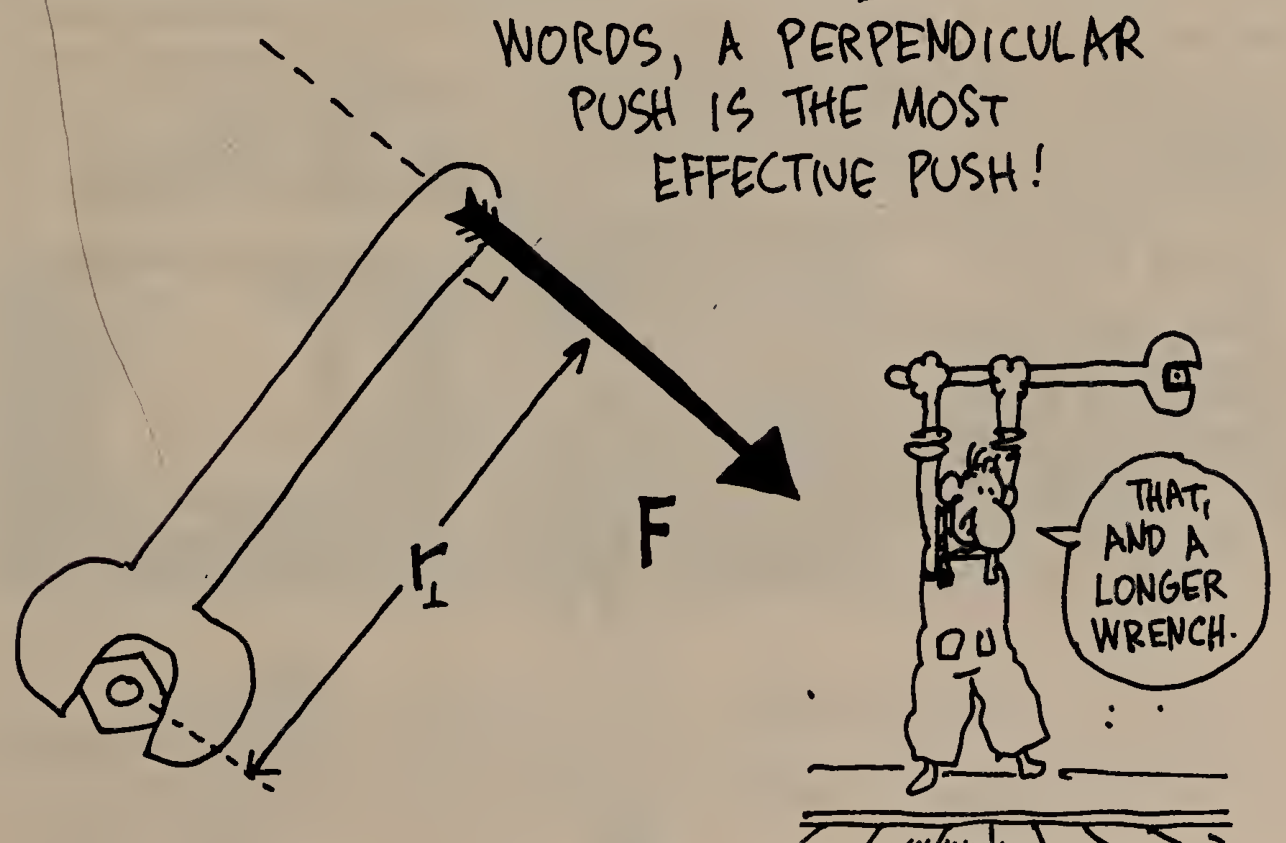 WORDS, A PERPENDICULAR
PUSH IS THE MOST
EFFECTIVE PUSH!
r⊥
F
THAT,
AND A
LONGER
WRENCH.